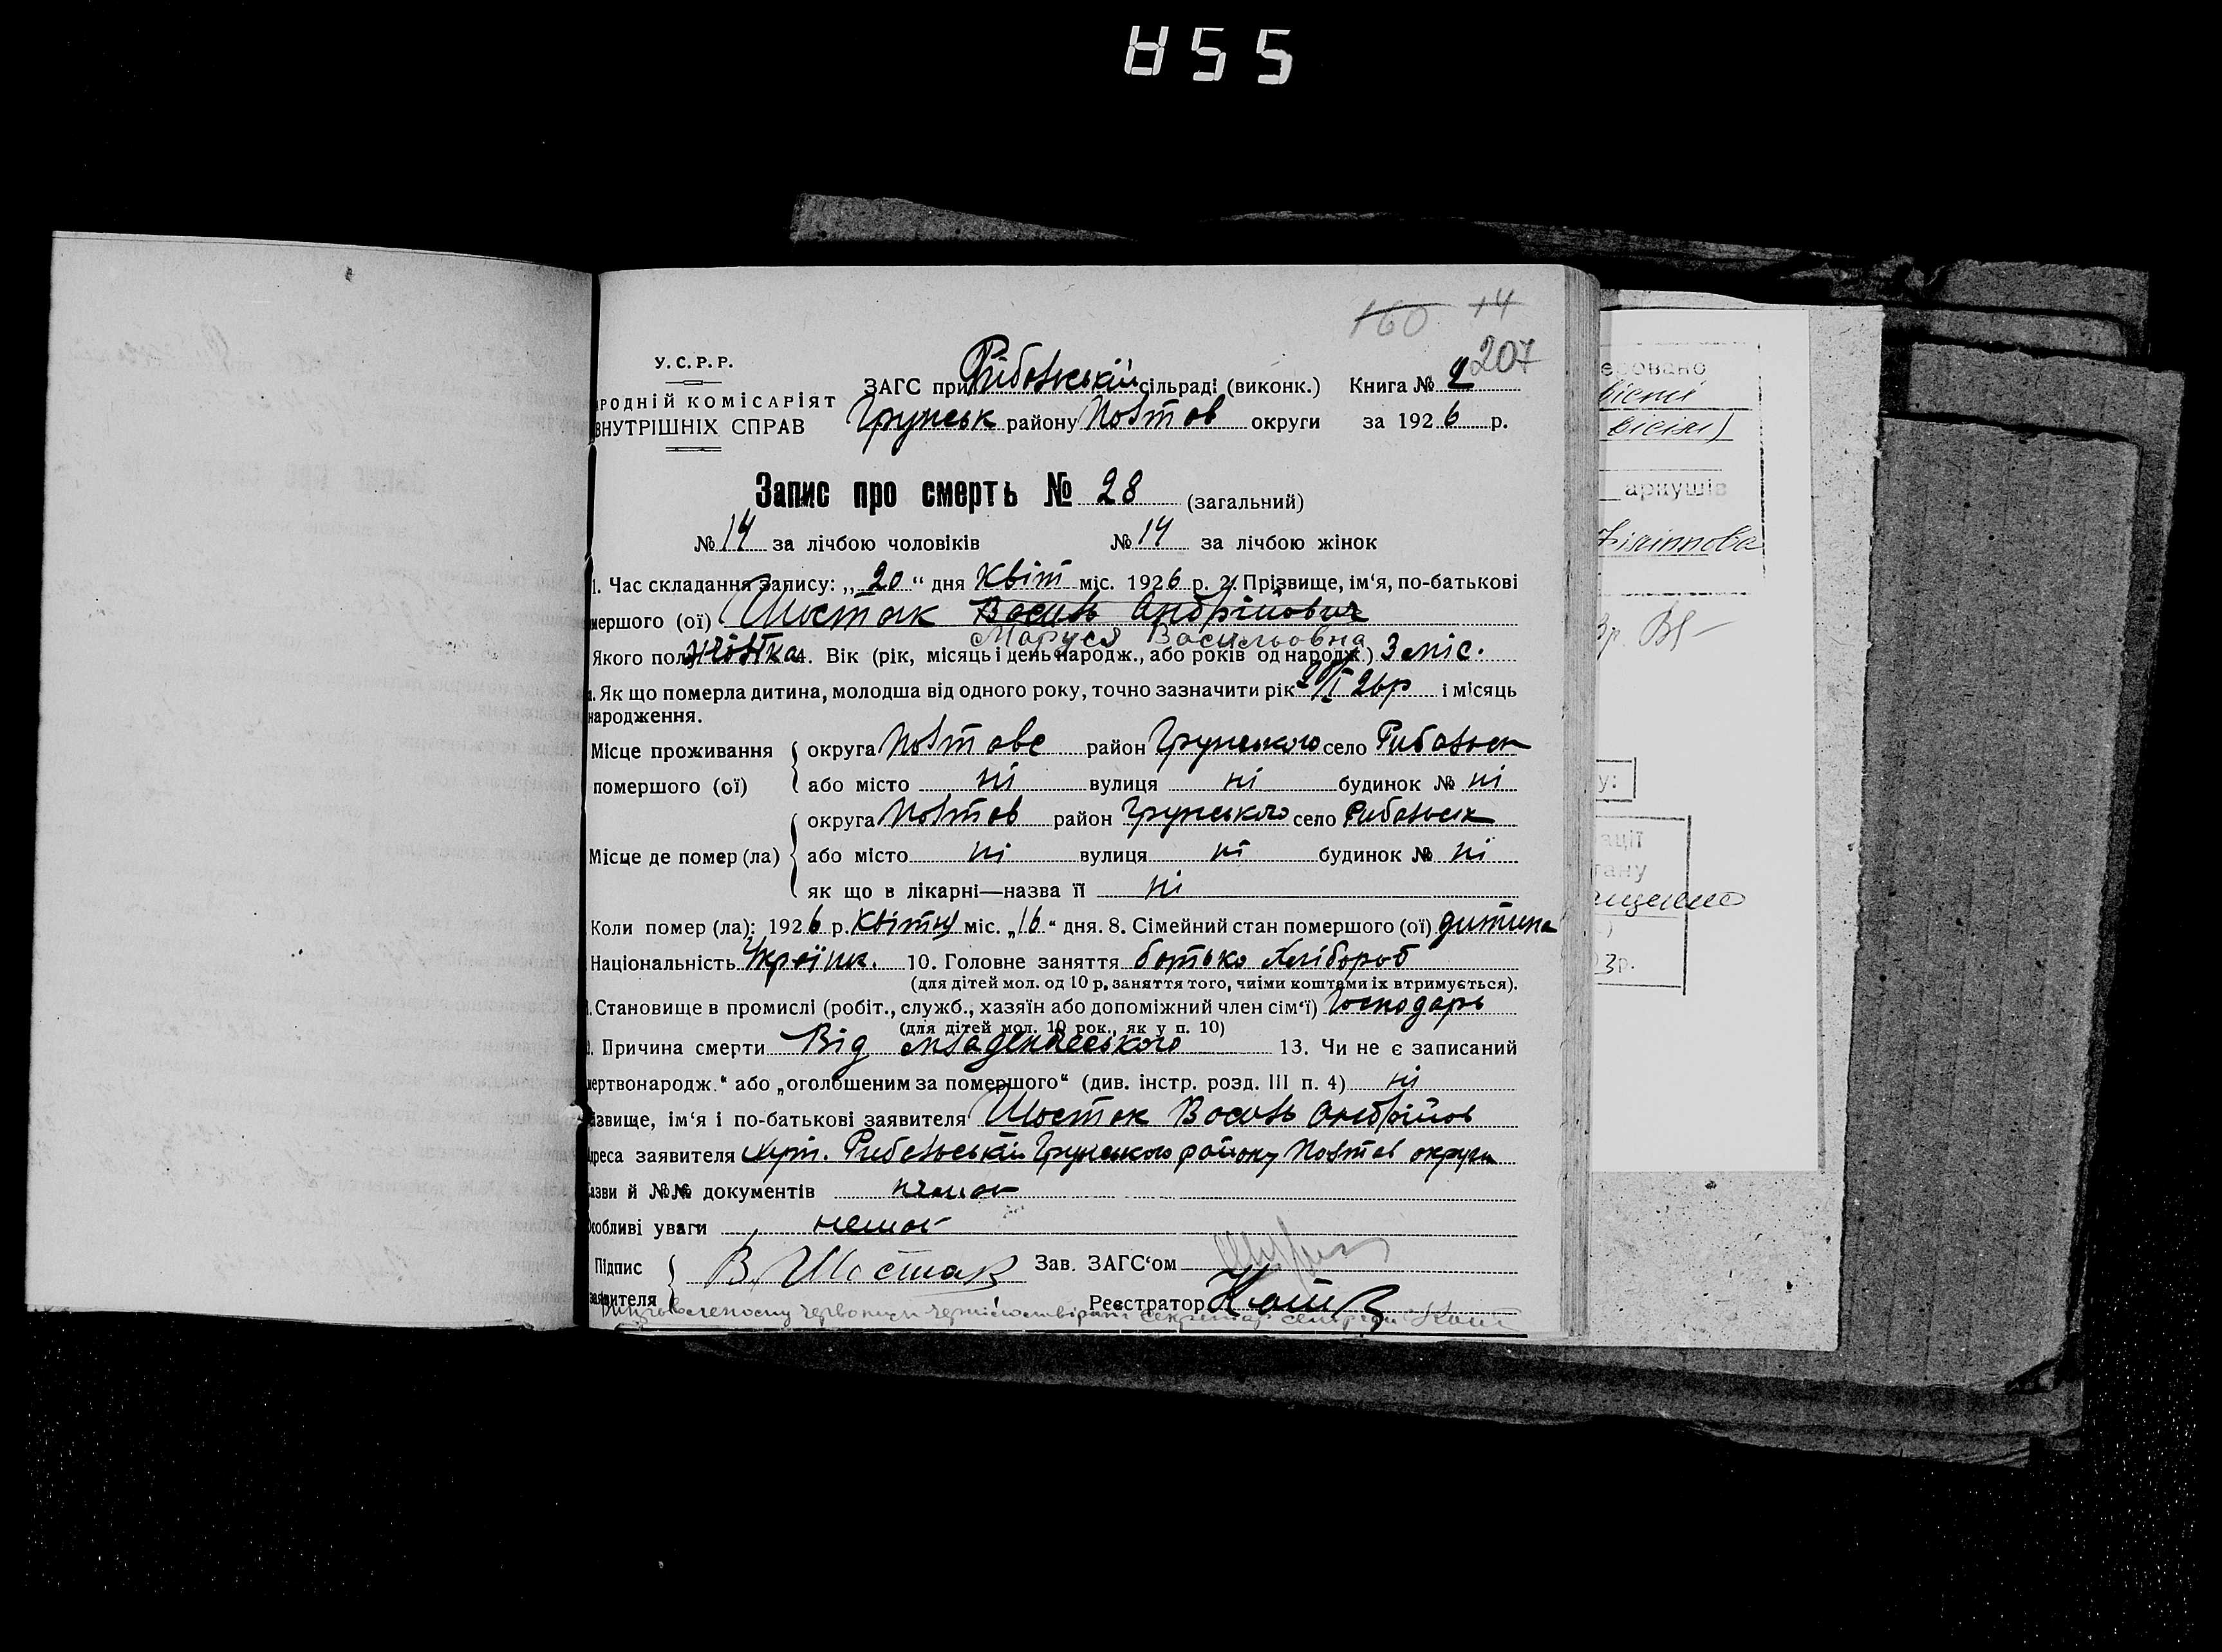 855
160 14
207
У.С.Р.Р.
ЗАГС при Рибальській сільраді (виконк.) Книга № 2
РОДНІЙ КОМІСАРІЯТ
ВНУТРІШНІХ СПРАВ
Грунськ району Полтав округи за 1926 р.
Запис про смерть № 28 (загальний)
№ 14 за лічбою чоловіків № 14 за лічбою жінок
1. Час складання запису: „20“ дня Квіт міс. 1926 р. 2. Прізвище, ім‘я, по-батькові
мершого (ої) Шостак Василь Андрійович
Маруся Васильовна
Якого пол жінка 4. Вік (рік, місяць і день народж., або років од народж.) 3 міс.
. Як що померла дитина, молодша від одного року, точно зазначити рік 20/I 26р і місяць
народження.
Місце проживання округа Полтаве район Грунського село Рибальск
помершого (ої) або місто ні вулиця ні будинок № ні
округа Полтав район Грунського село Рибальск
Місце де помер (ла) або місто ні вулиця ні будинок № ні
як що в лікарні—назва її ні
Коли помер (ла): 1926 р. Квітня міс. „16“ дня. 8. Сімейний стан помершого (ої) дитина
Національність Україн. 10. Головне заняття батько хлібороб
(для дітей мол. од 10 р. заняття того, чиїми коштами їх втримується).
. Становище в промислі (робіт., служб., хазяїн або допоміжний член сім‘ї) Господарь
(для дітей мол. 10 рок., як у п. 10)
. Причина смерти Від младенческого 13. Чи не є записаний
мертвонародж.“ або „оголошеним за помершого“ (див. інстр. розд. III п. 4) ні
азвище, ім‘я і по-батькові заявителя Шостак Василь Андрійов
дреса заявителя Рибальській Грунського району Полтав округи
азви й №№ документів немає
собливі уваги немає
Підпис В. Шостак Зав. ЗАГС‘ом
заявителя Реєстратор Кот
секретар сільради Кот
еровано
аркушів
у:
ації
тану
3р.